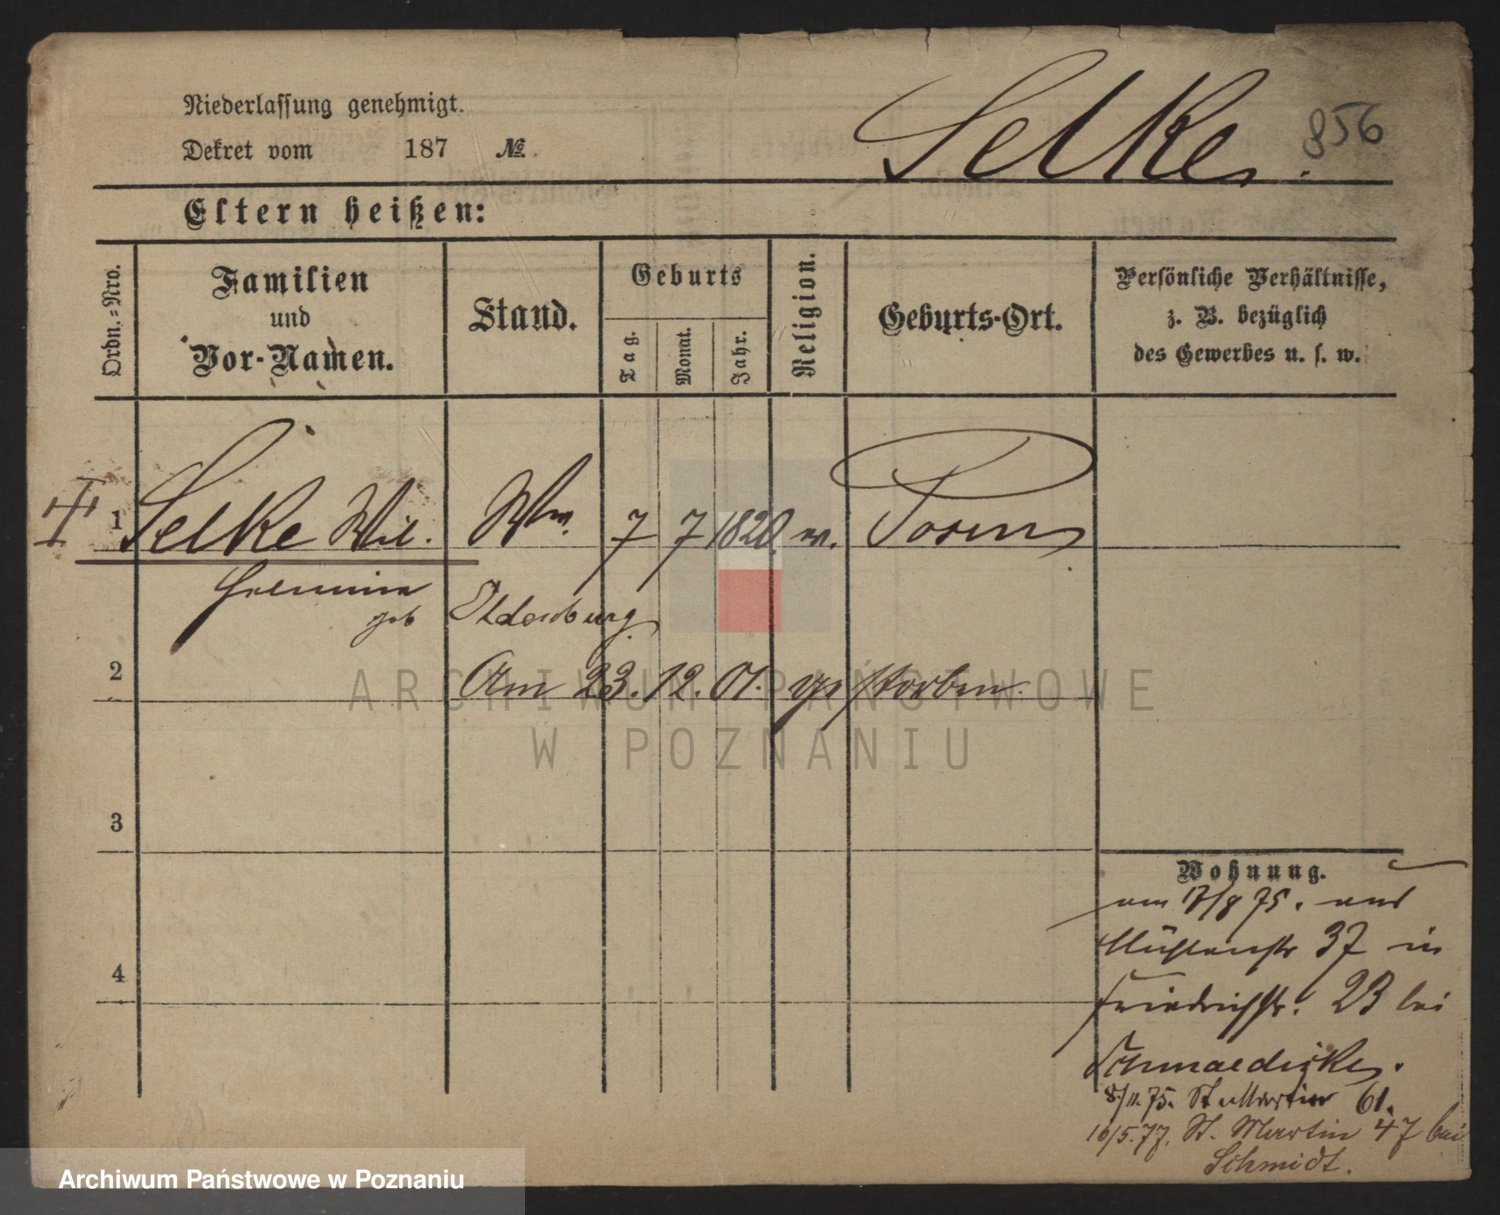 Niederlassung genehmigt.
Dekret vom 187 №
Selke. 856
Eltern heißen:
Ordn.-Nro.
Familien
und
Vor-Namen.
Stand.
Geburts
Tag.
Monat.
Jahr.
Religion.
Geburts-Ort.
Persönliche Verhältnisse,
z. B. bezüglich
des Gewerbes u. s. w.
1 Selke Wil. Ww. 7 7 1820. Posen
geb Oldenburg
2 Am 23. 12. 01. gestorben.
3
4
Wohnung.
am 17/8 75. aus
Mühlenstr 37 in
Friedrichstr. 23 bei
Schmaedicke.
8/11.75. St Martin 61.
16/5.77. St. Martin 47 bei
Schmidt.
ARCHIWUM PAŃSTWOWE
W POZNANIU
Archiwum Państwowe w Poznaniu